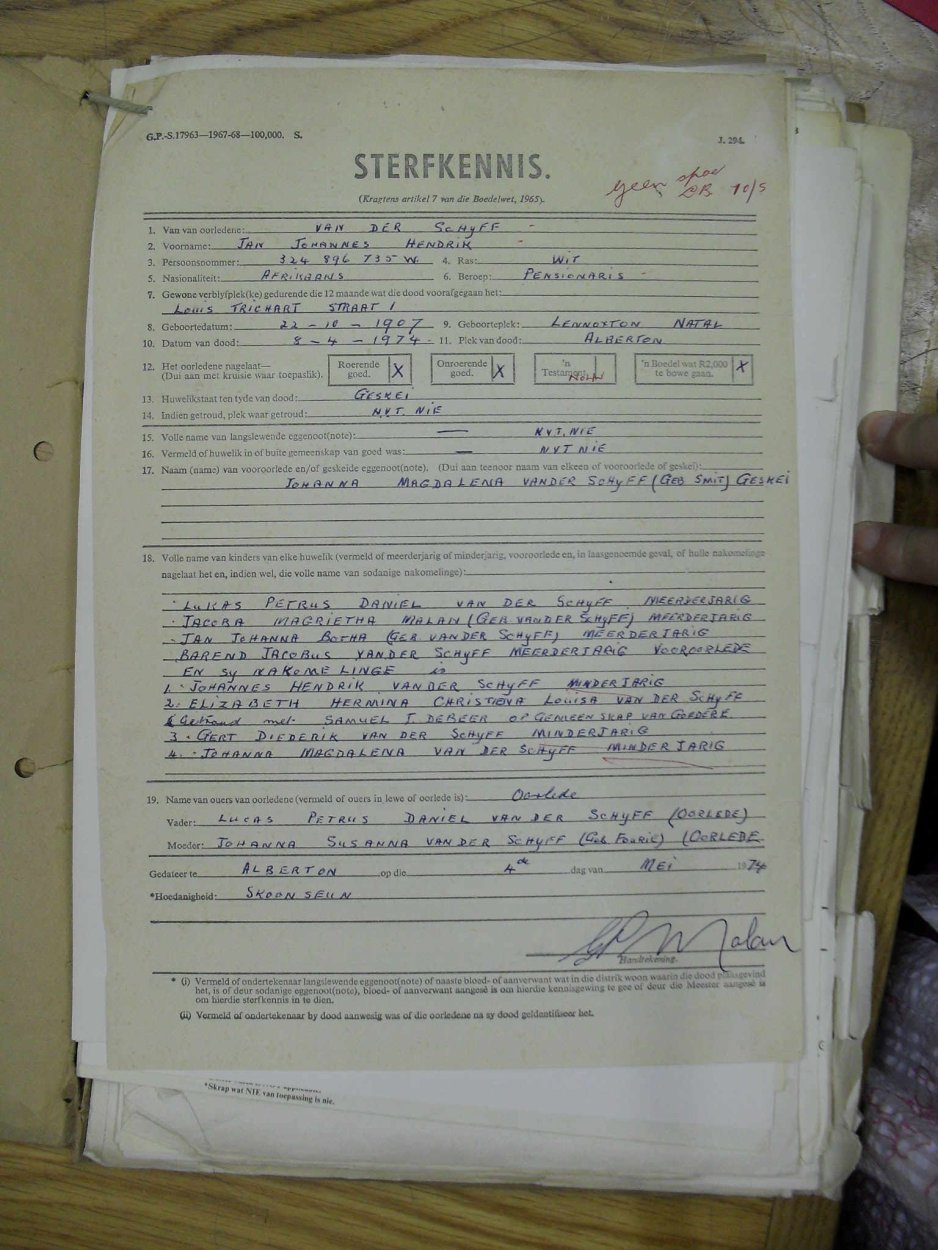 G.P.-S.17963—1967-68—100,000. S.
J. 294.
STERFKENNIS.
(Kragtens artikel 7 van die Boedelwet, 1965).
Geen 10/5
1. Van van oorledene: VAN DER SCHYFF
2. Voorname: JAN JOHANNES HENDRIK
3. Persoonsnommer: 324 896 735 W. 4. Ras: WIT
5. Nasionaliteit: AFRIKAANS 6. Beroep: PENSIONARIS
7. Gewone verblyfplek(ke) gedurende die 12 maande wat die dood voorafgegaan het:
LOUIS TRICHART STRAAT 1
8. Geboortedatum: 22-10-1907 9. Geboorteplek: LENNOXTON NATAL
10. Datum van dood: 8-4-1974 11. Plek van dood: ALBERTON
12. Het oorledene nagelaat— (Dui aan met kruisie waar toepaslik). Roerende goed. X Onroerende goed. X 'n Testament. 'n Boedel wat R2,000 te bowe gaan. X
13. Huwelikstaat ten tyde van dood: GESKEI
14. Indien getroud, plek waar getroud: NVT. NIE
15. Volle name van langslewende eggenoot(note): — NVT. NIE
16. Vermeld of huwelik in of buite gemeenskap van goed was: — NVT NIE
17. Naam (name) van vooroorlede en/of geskeide eggenoot(note). (Dui aan teenoor naam van elkeen of vooroorlede of geskei):
JOHANNA MAGDALENA VANDER SCHYFF (GEB SMIT) GESKEI
18. Volle name van kinders van elke huwelik (vermeld of meerderjarig of minderjarig, vooroorlede en, in laasgenoemde geval, of hulle nakomelinge
nagelaat het en, indien wel, die volle name van sodanige nakomelinge):
LUKAS PETRUS DANIEL VAN DER SCHYFF MEERDERJARIG
JACOBA MAGRIETHA MALAN (GEB VANDER SCHYFF) MEERDERJARIG
JAN JOHANNA BOTHA (GEB VANDER SCHYFF) MEERDERJARIG
BAREND JACOBUS VANDER SCHYFF MEERDERJARIG VOOROORLEDE
EN SY NAKOMELINGE is
1. JOHANNES HENDRIK VANDER SCHYFF MINDERJARIG
2. ELIZABETH HERMINA CHRISTIENA LOUISA VAN DER SCHYFF
Getroud met SAMUEL I. DEBEER OP GEMEENSKAP VAN GOEDERE.
3. GERT DIEDERIK VAN DER SCHYFF MINDERJARIG
4. JOHANNA MAGDALENA VAN DER SCHYFF MINDERJARIG
19. Name van ouers van oorledene (vermeld of ouers in lewe of oorlede is): Oorlede
Vader: LUCAS PETRUS DANIEL VAN DER SCHYFF (OORLEDE)
Moeder: JOHANNA SUSANNA VAN DER SCHYFF (Geb FOURIE) (OORLEDE
Gedateer te ALBERTON op die 4de dag van MEI 1974
*Hoedanigheid: SKOONSEUN
GP Malan
Handtekening.
* (i) Vermeld of ondertekenaar langslewende eggenoot(note) of naaste bloed- of aanverwant wat in die distrik woon waarin die dood plaasgevind
het, is of deur sodanige eggenoot(note), bloed- of aanverwant aangesê is om hierdie kennisgewing te gee of deur die Meester aangesê is
om hierdie sterfkennis in te dien.
(ii) Vermeld of ondertekenaar by dood aanwesig was of die oorledene na sy dood geïdentifiseer het.
*Skrap wat NIE van toepassing is nie.